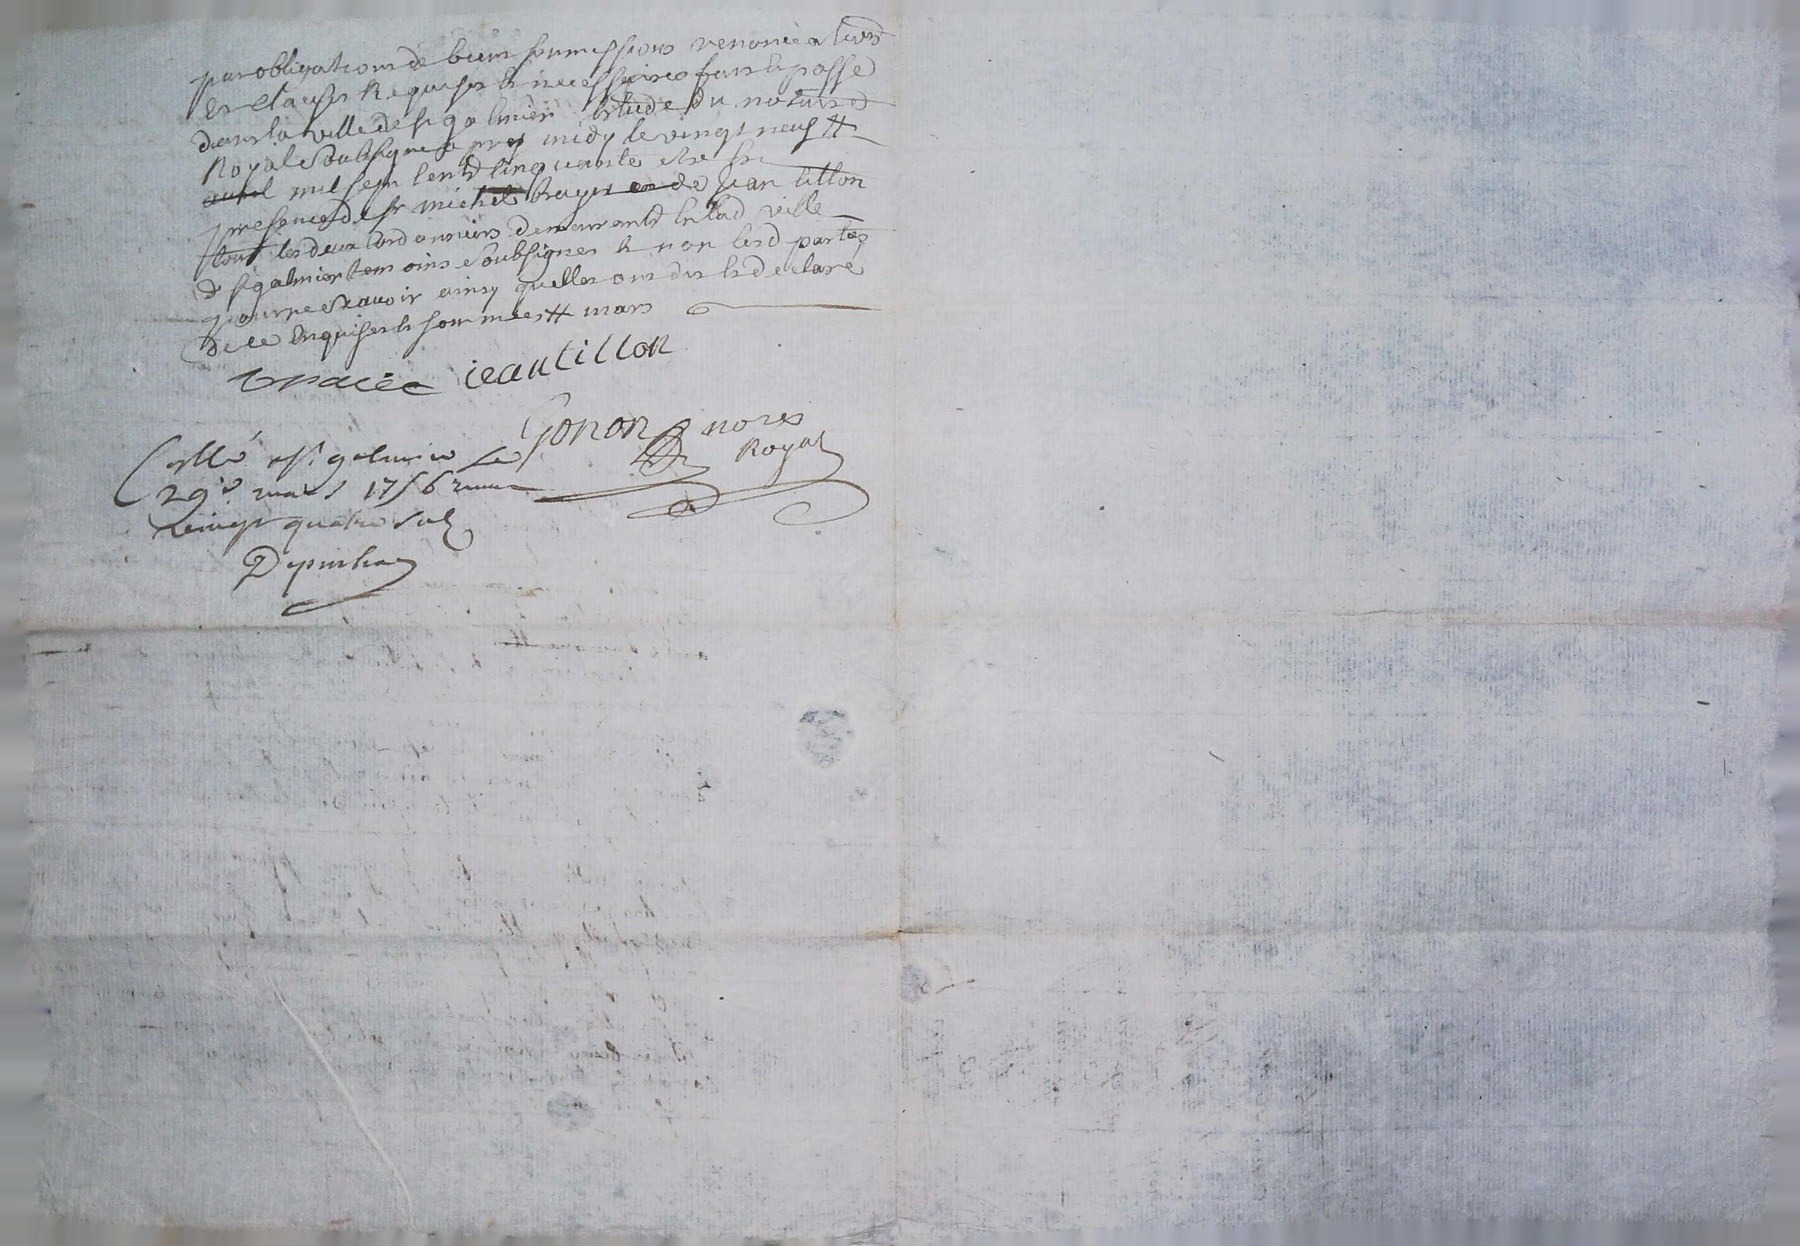 par obligations de biens soumissions renonce a tous
Et clauses Requises et necessaires fait et passé
dans la ville de st galmier Etude du notaire
Royal soubsigné apres midy le vingt neuf #
avril mil sept cent cinquante six En
presence de sr michel et de Jean tillon
tous les deux cordonniers demeurants En lad ville
de st galmier temoins soubsignes et non lesd parties
pour ne scavoir ainsy quelles ont dit et declaré
de ce Enquises et sommées # mars
jean tillon
Gonon nore
Royal
Collé a st galmier le
29e mars 1756
vingt quatre sols